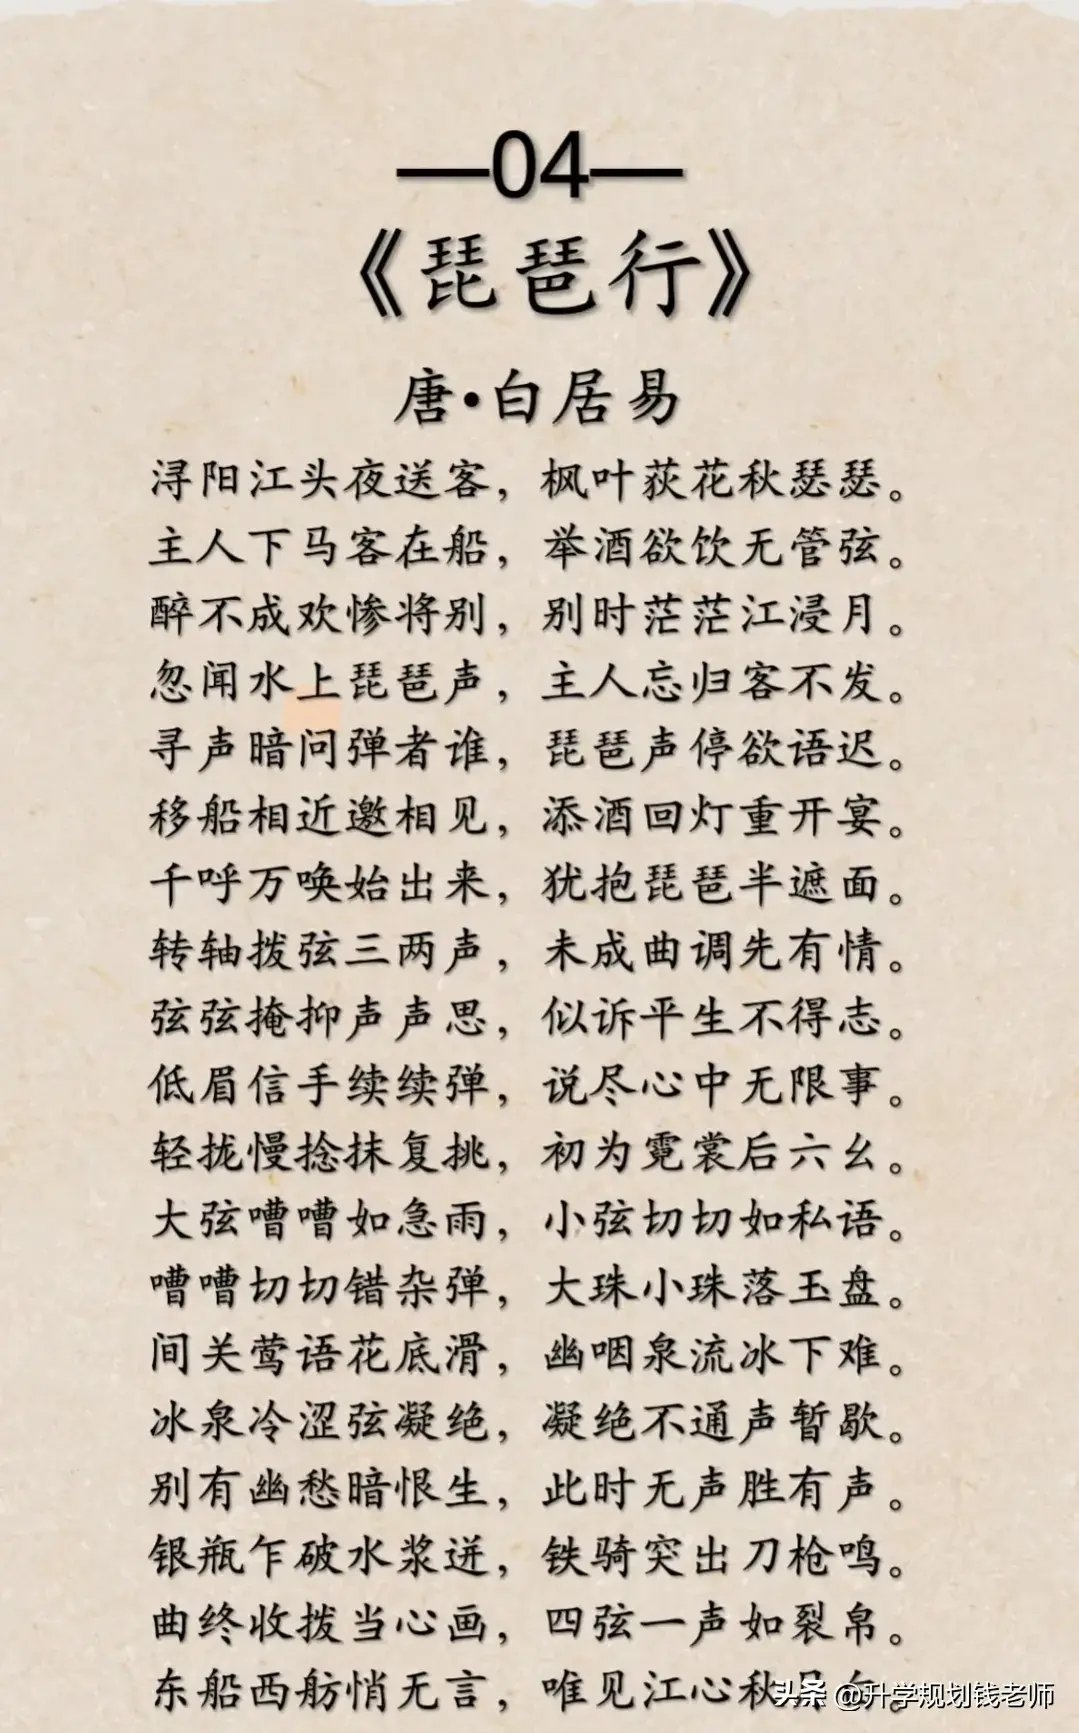 —04—
《琵琶行》
唐•白居易
浔阳江头夜送客，枫叶荻花秋瑟瑟。
主人下马客在船，举酒欲饮无管弦。
醉不成欢惨将别，别时茫茫江浸月。
忽闻水上琵琶声，主人忘归客不发。
寻声暗问弹者谁，琵琶声停欲语迟。
移船相近邀相见，添酒回灯重开宴。
千呼万唤始出来，犹抱琵琶半遮面。
转轴拨弦三两声，未成曲调先有情。
弦弦掩抑声声思，似诉平生不得志。
低眉信手续续弹，说尽心中无限事。
轻拢慢捻抹复挑，初为霓裳后六幺。
大弦嘈嘈如急雨，小弦切切如私语。
嘈嘈切切错杂弹，大珠小珠落玉盘。
间关莺语花底滑，幽咽泉流冰下难。
冰泉冷涩弦凝绝，凝绝不通声暂歇。
别有幽愁暗恨生，此时无声胜有声。
银瓶乍破水浆迸，铁骑突出刀枪鸣。
曲终收拨当心画，四弦一声如裂帛。
东船西舫悄无言，唯见江心秋
头条 @升学规划钱老师